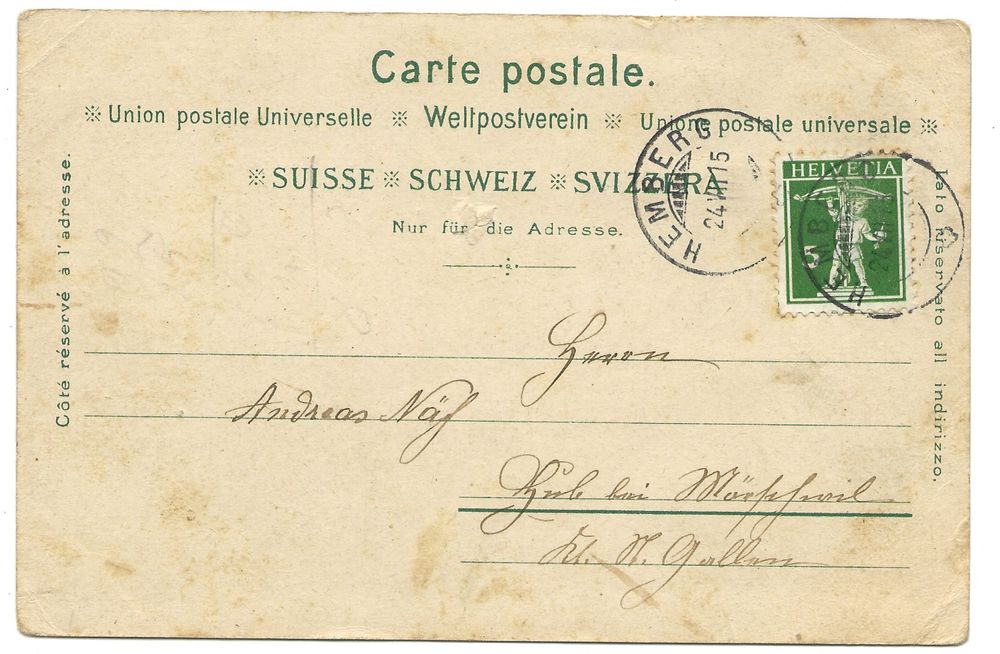 Carte postale.
※ Union postale Universelle ※ Weltpostverein ※ Unione postale universale ※
※ SUISSE ※ SCHWEIZ ※ SVIZZERA
Nur für die Adresse.
Côté réservé à l'adresse.
Lato riservato all indirizzo.
HEMBERG
24.VII.15
HELVETIA
5
HEMBERG
Herrn
Andreas Näf
Hub bei Mörschwil
Kt. St. Gallen